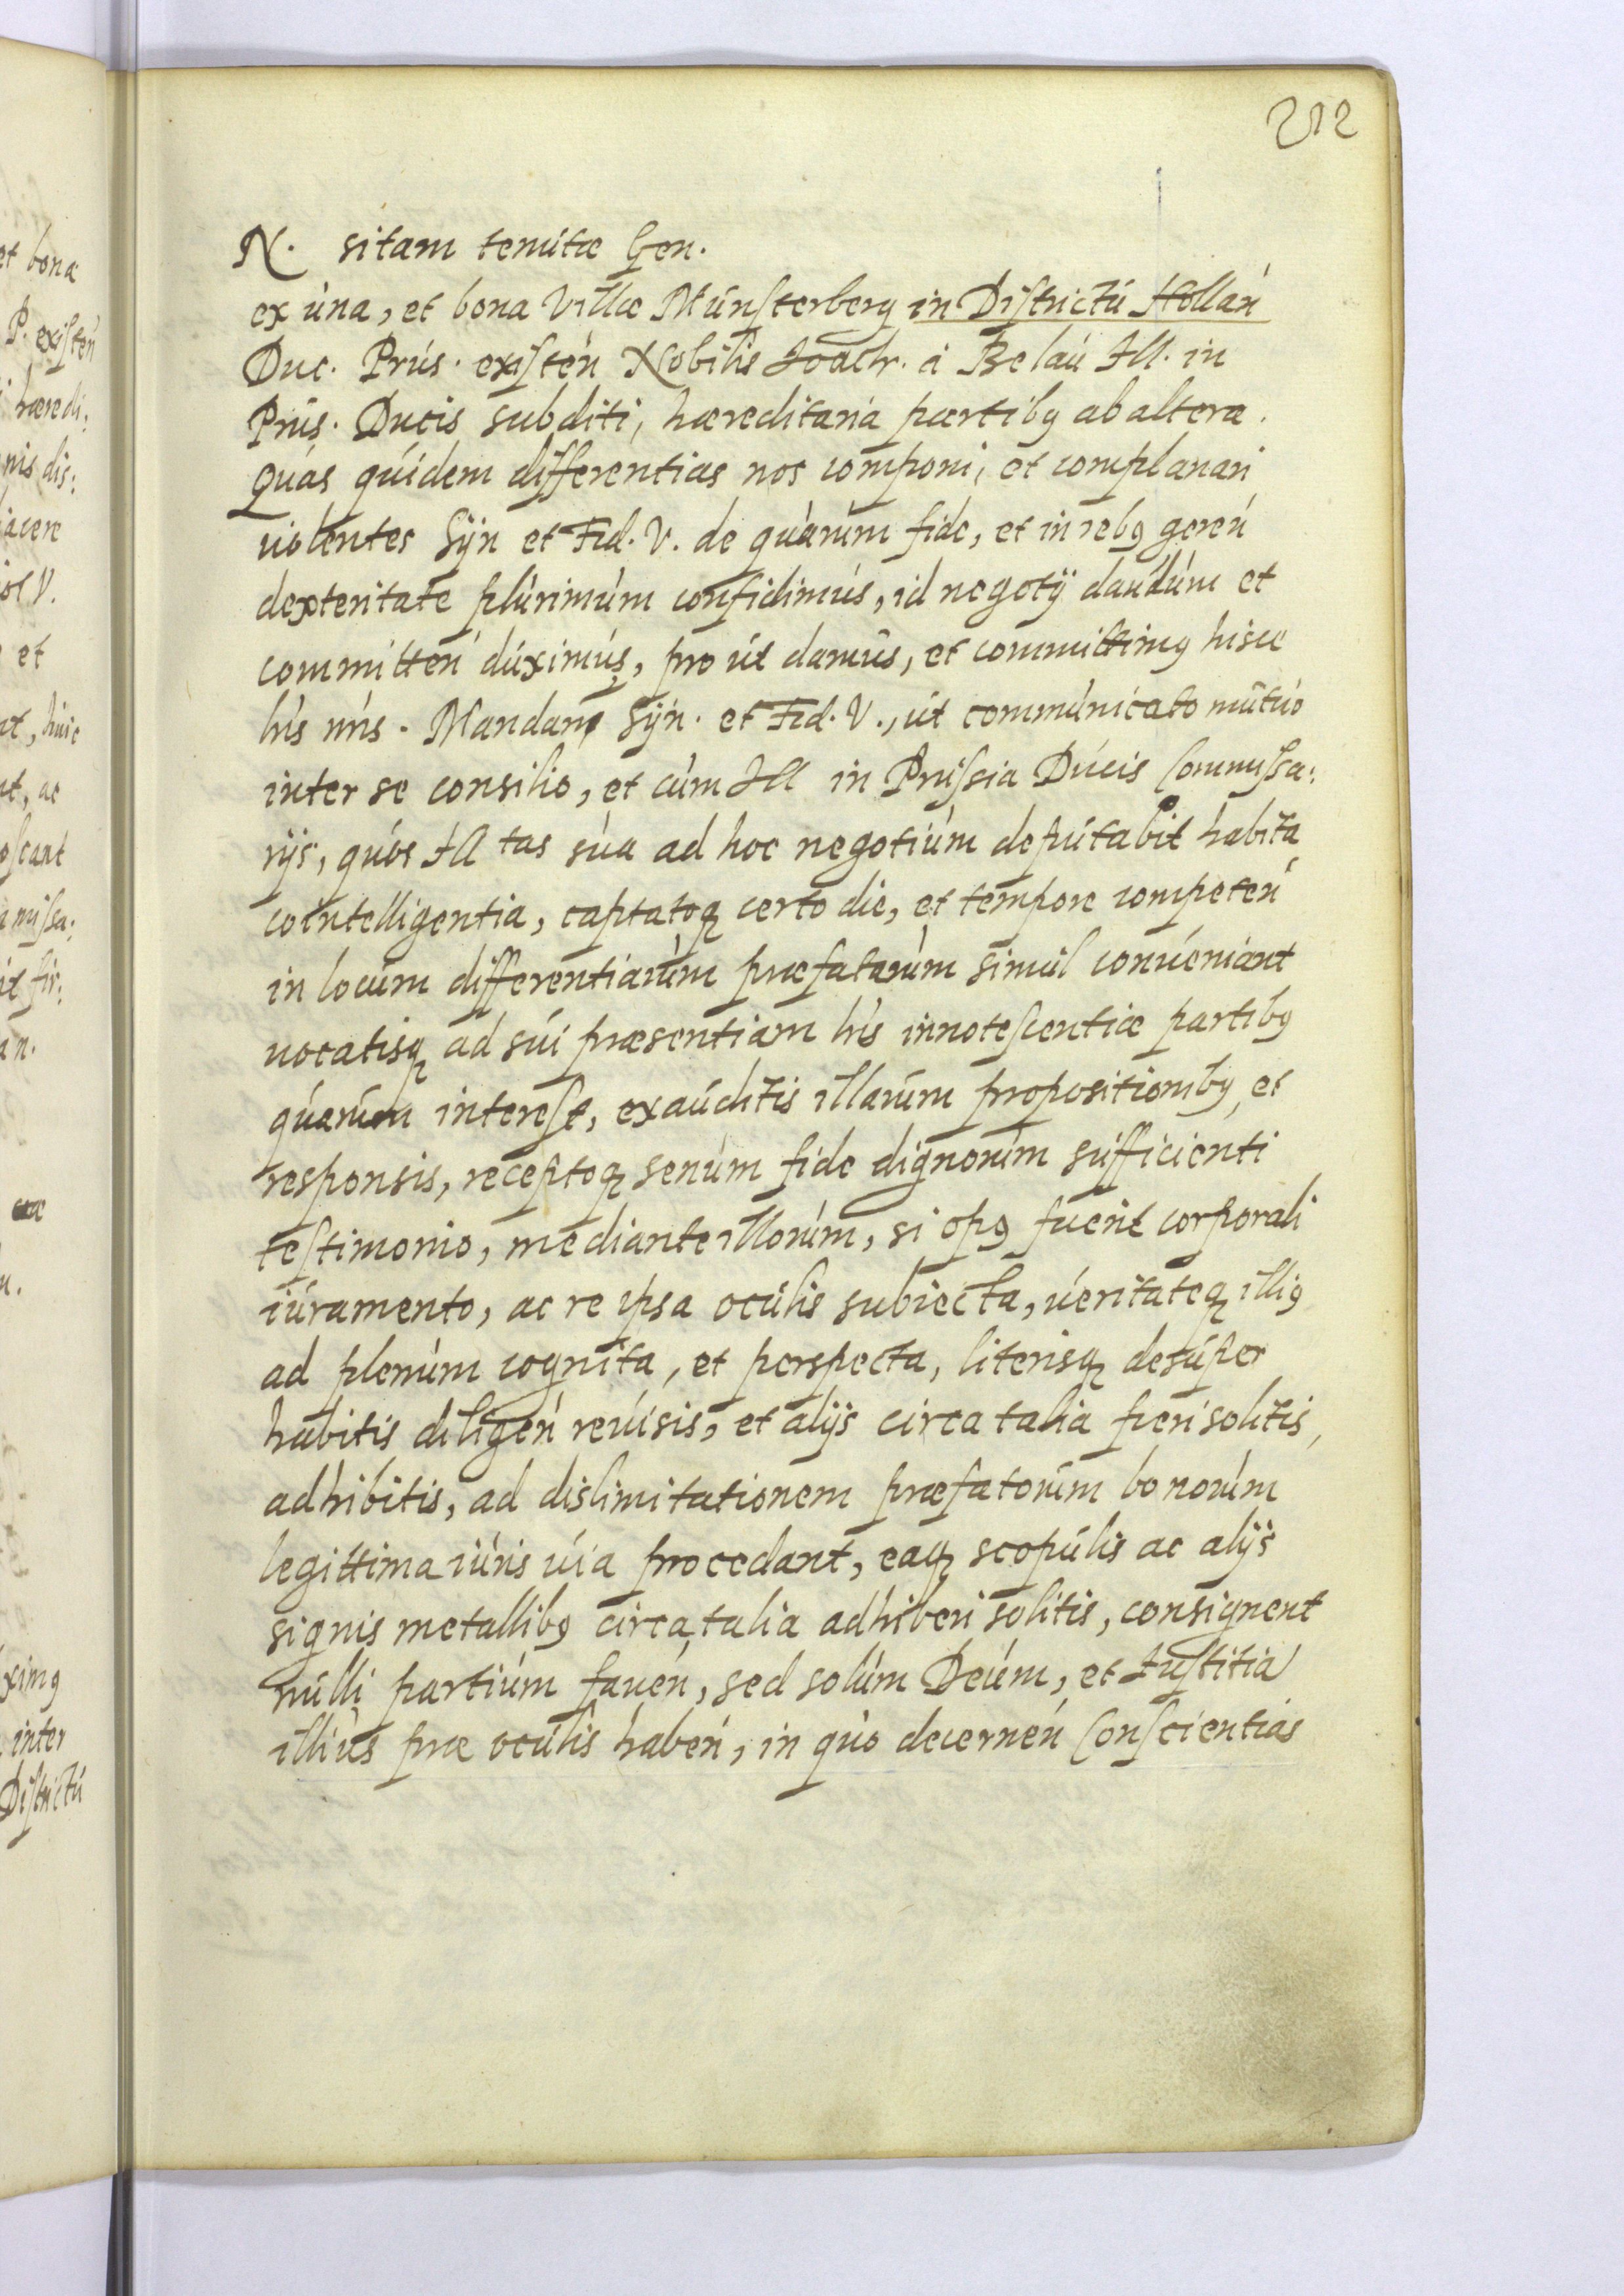 212
N. sitam tenutæ Gen.
ex una, et bona Villæ Münsterberg in Districtu Hollań
Duc. Prus. existeń Nobilis Joach. à Belau Ill. in
Prus. Ducis subditi, hæreditaria partibꝫ ab altera.
Quas quidem differentias nos componi, et complanari
uolentes Syn et Fid. V. de quarum fide, et in rebꝫ gereń
dexteritate plurimum confidimus, id negotij dandum et
committeń duximus, pro ut damus, et committimꝫ hisce
lris nris. Mandamꝫ Syn. et Fid. V., ut communicato mutuo
inter se consilio, et cum Ill in Prussia Ducis Commissa:
rijs, quos Ill tas sua ad hoc negotium deputabit habita
cointelligentia, captatoqꝫ certo die, et tempore competeń
in locum differentiarum præfatarum simul conueniant
uocatisqꝫ ad sui præsentiam lris innotescentiæ partibꝫ
quarum interest, exauditis illarum propositionibꝫ, et
responsis, receptoqꝫ senum fide dignorum sufficienti
testimonio, mediante illorum, si opꝫ fuerit corporali
iuramento, ac re ipsa oculis subiecta, ueritateqꝫ illiꝫ
ad plenum cognita, et perspecta, literisqꝫ desuper
habitis diligeń reuisis, et alijs circa talia fieri solitis,
adhibitis, ad dislimitationem præfatorum bonorum
legittima iuris uia procedant, eaqꝫ scopulis ac alijs
signis metallibꝫ circa talia adhiberi solitis, consignent
nulli partium faueń, sed solum Deum, et Justitia
illius præ oculis habeń, in quo decerneń Conscientias
et bona
P. existeń
hæredi:
nis dis:
iacere
V.
et
nt, huic
nt, ac
oscant
missa:
it fir:
an.
ximꝫ
inter
Districtu